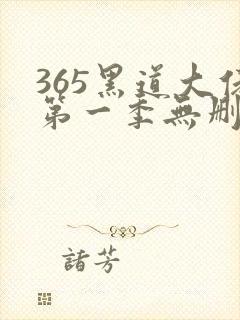 365黑道大佬
第一季無刪
諸芳